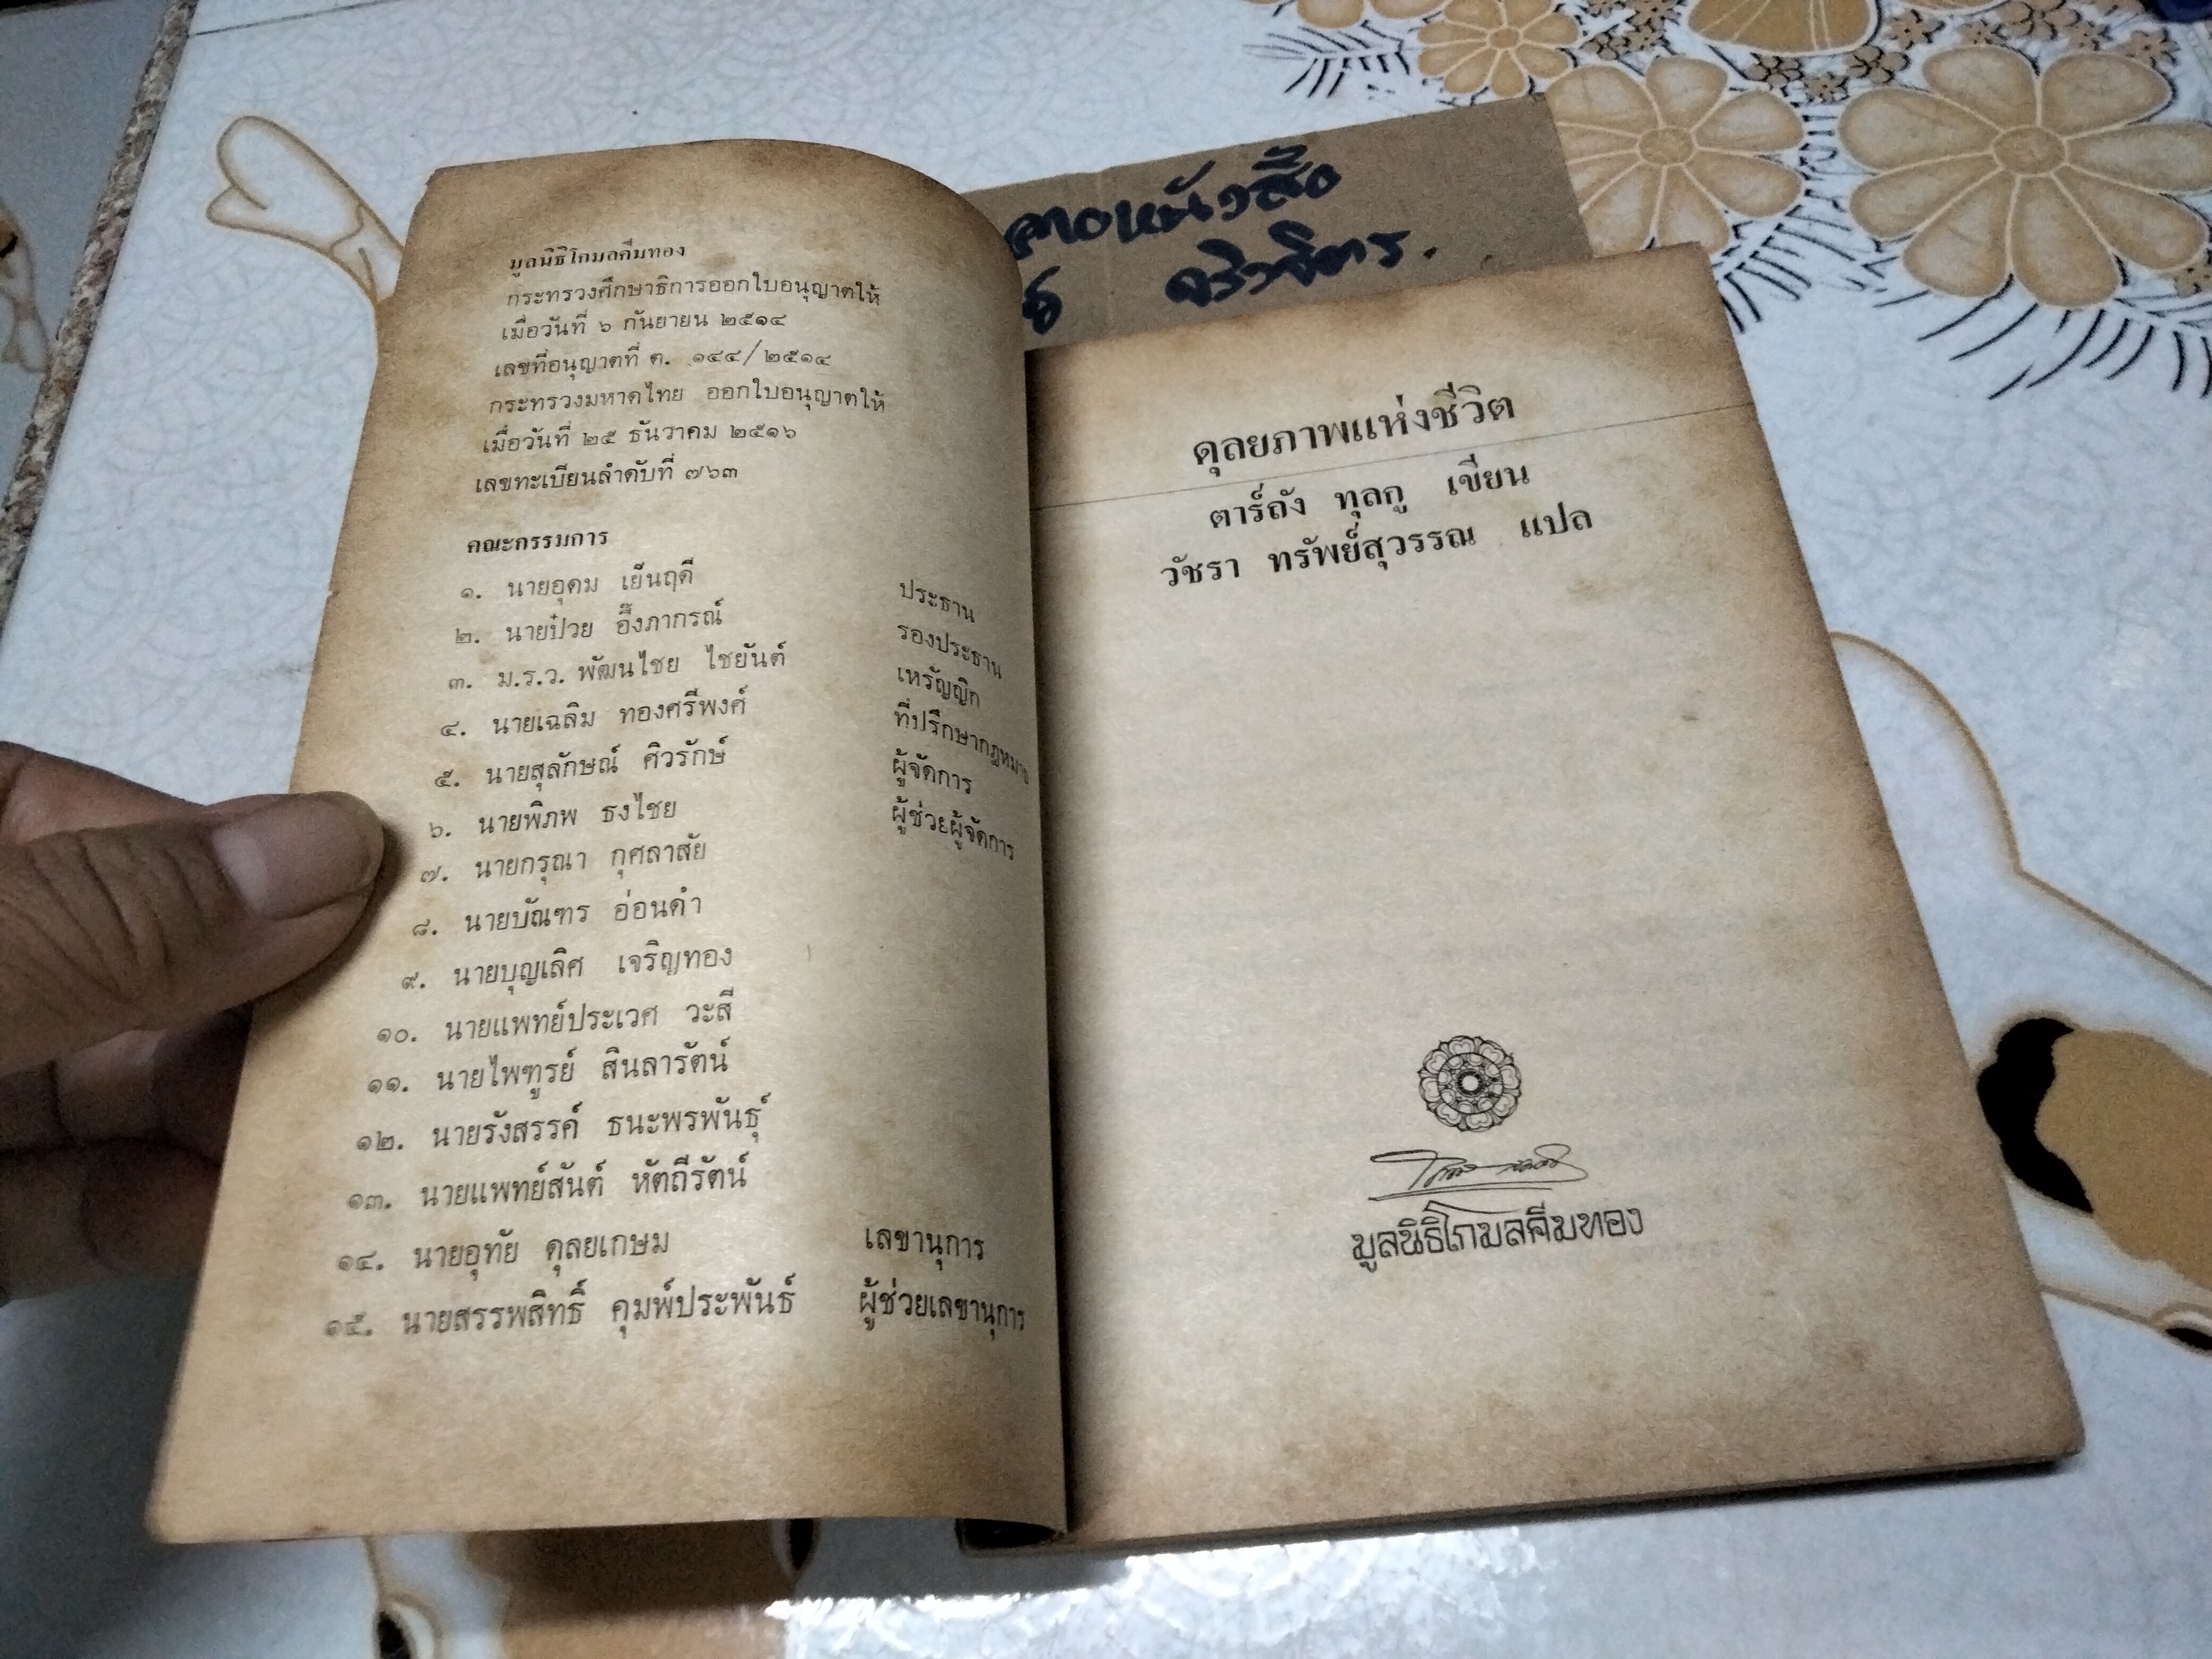 มูลนิธิโกมลคีมทอง
กระทรวงศึกษาธิการออกใบอนุญาตให้
เมื่อวันที่ ๖ กันยายน ๒๕๑๔
เลขที่อนุญาตที่ ต. ๑๔๔/๒๕๑๔
กระทรวงมหาดไทย ออกใบอนุญาตให้
เมื่อวันที่ ๒๕ ธันวาคม ๒๕๑๖
เลขทะเบียนลำดับที่ ๗๖๓
คณะกรรมการ
๑. นายอุดม เย็นฤดี ประธาน
๒. นายป๋วย อึ๊งภากรณ์ รองประธาน
๓. ม.ร.ว. พัฒนไชย ไชยันต์ เหรัญญิก
๔. นายเฉลิม ทองศรีพงศ์ ที่ปรึกษากฎหมาย
๕. นายสุลักษณ์ ศิวรักษ์ ผู้จัดการ
๖. นายพิภพ ธงไชย ผู้ช่วยผู้จัดการ
๗. นายกรุณา กุศลาสัย
๘. นายบัณฑร อ่อนดำ
๙. นายบุญเลิศ เจริญทอง
๑๐. นายแพทย์ประเวศ วะสี
๑๑. นายไพฑูรย์ สินลารัตน์
๑๒. นายรังสรรค์ ธนะพรพันธุ์
๑๓. นายแพทย์สันต์ หัตถีรัตน์
๑๔. นายอุทัย ดุลยเกษม เลขานุการ
๑๕. นายสรรพสิทธิ์ คุมพ์ประพันธ์ ผู้ช่วยเลขานุการ
ดุลยภาพแห่งชีวิต
ตาร์ถัง ทุลกู เขียน
วัชรา ทรัพย์สุวรรณ แปล
มูลนิธิโกมลคีมทอง